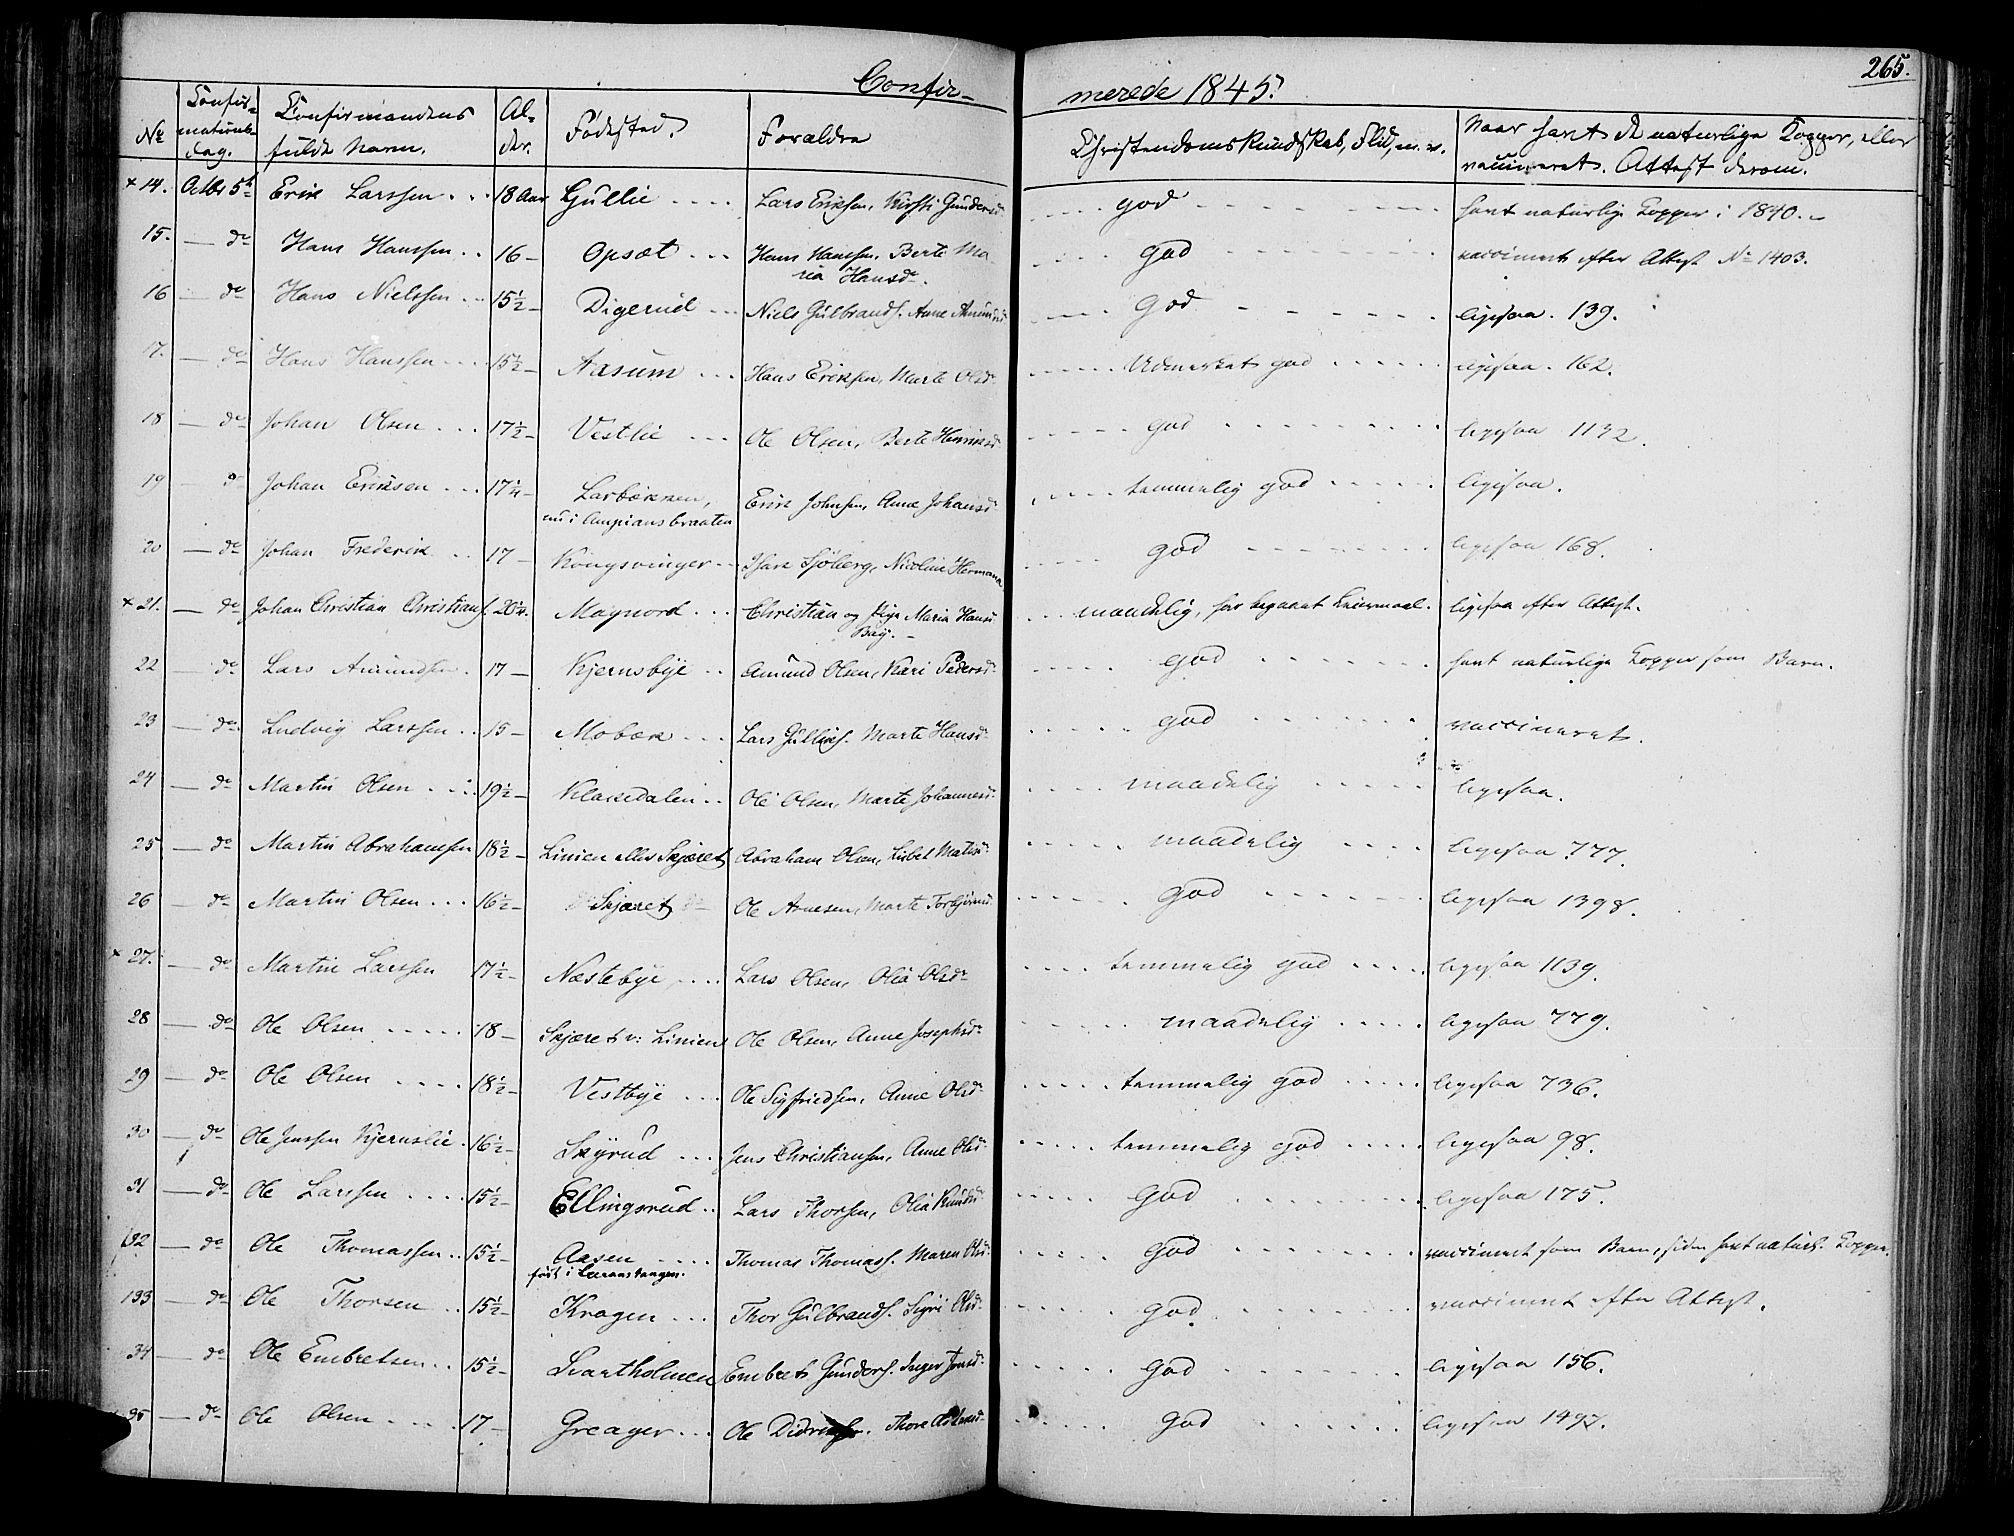 265.
Confir-
merede 1845.
No
Confir-
mations-
dag.
Confirmandens
fulde Navn.
Al-
der.
Fødested.
Forældre
Christendomskundskab, Flid, m. v.
Naar havt de naturlige Kopper, eller
vaccineret. Attest derom.
+ 14. Octbr 5te Erik Larssen 18 Aar Gullie Lars Eriksen, Kirsti Gundersd god havt naturlige Kopper i 1840.
15. — do Hans Hanssen 16 — Opsæt Hans Hanssen, Berte Ma- god vaccineret efter Attest No 1403.
ria Hansdr.
16 — do Hans Nielssen 15½ — Digerud Niels Gulbrands. Anne Amundsd god ligesaa. 139.
17. — do Hans Hanssen 15½ — Aasum Hans Eriksen, Marte Olsdr Udmærket god ligesaa. 162.
18 — do Johan Olsen 17½ — Vestlie Ole Olsen, Berte Henriksd god ligesaa 1132.
19 — do Johan Eriksen 17¼ — Larbekken, Erik Johnsen, Anne Johansd temmelig god ligesaa.
nu i Ampiansbraaten
20 — do Johan Frederik 17 — Kongsvinger Sjøberg, Nicoline Hermana god ligesaa 168.
+ 21. — do Johan Christian Christians. 20¼. Magnord Christian og Pige Maria Hansd maadelig, har begaaet Leiermaal. ligesaa efter Attest.
22 — do Lars Amundsen 17 — Kjernsbye Amund Olsen, Kari Pedersd god havt naturlige Kopper som Barn.
23 — do Ludvig Larssen 15 — Mobæk Lars Gulliks. Marte Hansdr god vaccineret.
24 — do Martin Olsen 19½ — Klakedalen Ole Olsen, Marte Johannesd maadelig ligesaa.
25 — do Martin Abrahamsen 18½ — Linien eller Skjæret Abraham Olsen, Lisbet Matisd maadelig ligesaa 777.
26 — do Martin Olsen 16½ — Skjæret Ole Arnesen, Marte Torbjørnsd god ligesaa 1398.
+ 27. — do Martin Larssen 17½ — Næstebye Lars Olsen, Olia Olsdr temmelig god ligesaa 1139.
28 — do Ole Olsen 18 — Skjæret v: Linien Ole Olsen, Anne Josephsdr maadelig ligesaa 779.
29 — do Ole Olsen 18½ — Vestbye Ole Sigfriedsen, Anne Olsd temmelig god ligesaa 736.
30 — do Ole Jenssen Kjernslie 16½ — Skyrud Jens Christiansen, Anne Olsd temmelig god ligesaa 98.
31 — do Ole Larssen 15½ — Ellingsrud Lars Thorsen, Olia Knudsd god ligesaa 175.
132 — do Ole Thomassen 15½ — Aasen Thomas Thomass. Maren Olsd god vaccineret som Barn, siden havt naturl. Kopper.
født i
133 — do Ole Thorsen 15½ — Kragen Thor Gulbrands. Sigri Olsd god vaccineret efter Attest.
34 — do Ole Embretsen 15½ — Svartholmen Embret Gunders. Inger Jensd god ligesaa 156.
35 — do Ole Olsen 17 — Greager Ole Thore god ligesaa 1497.